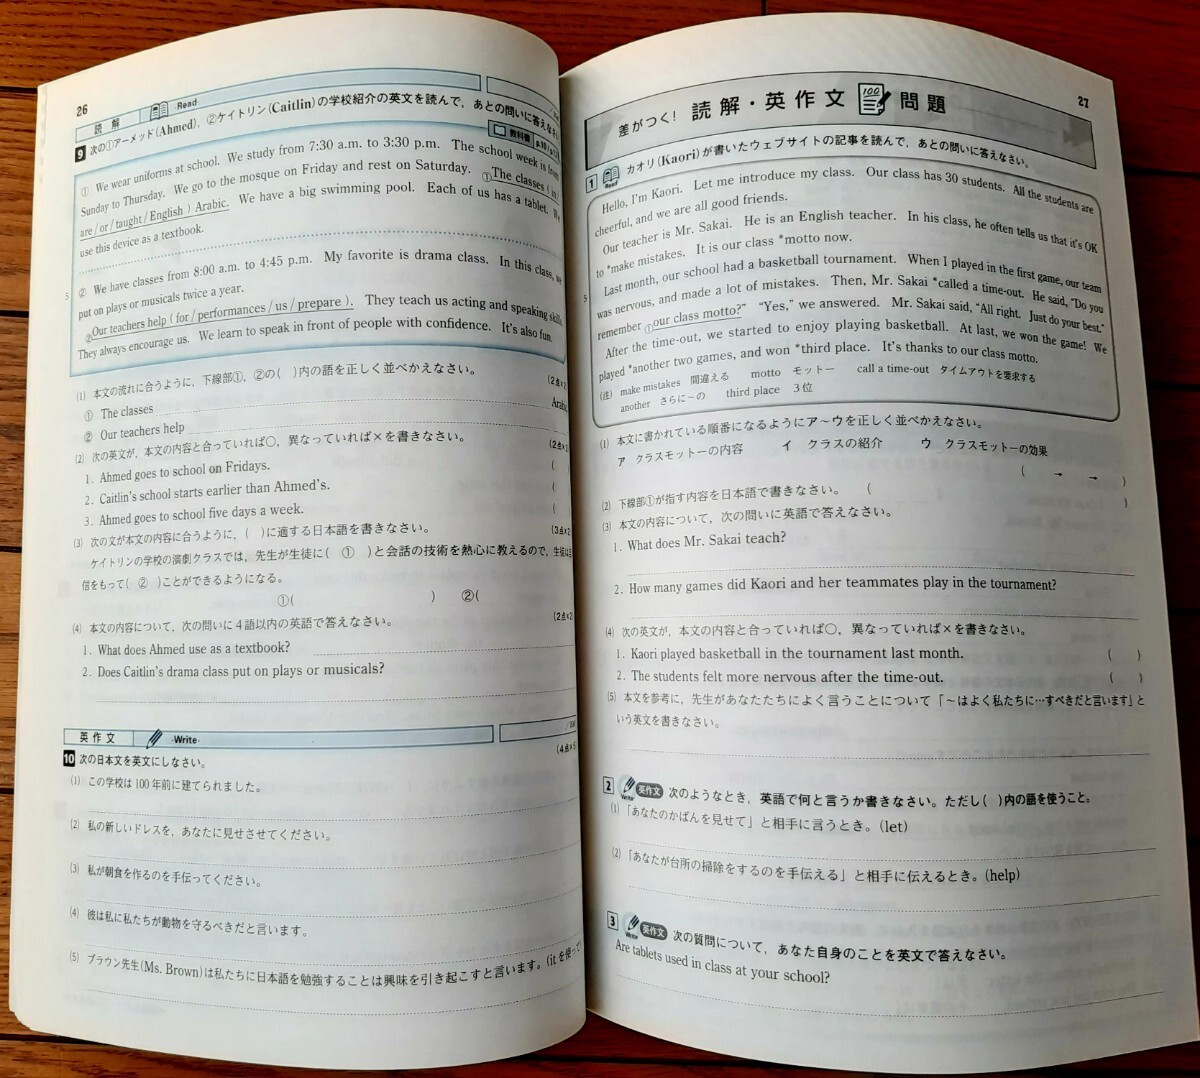 26
読解 Read
9 次の①アーメッド(Ahmed)，②ケイトリン(Caitlin)の学校紹介の英文を読んで，あとの問いに答えなさい
教科書
① We wear uniforms at school. We study from 7:30 a.m. to 3:30 p.m. The school week is from
Sunday to Thursday. We go to the mosque on Friday and rest on Saturday. ①The classes ( in /
are / or / taught / English ) Arabic. We have a big swimming pool. Each of us has a tablet. We
use this device as a textbook.
② We have classes from 8:00 a.m. to 4:45 p.m. My favorite is drama class. In this class, we
5 put on plays or musicals twice a year.
②Our teachers help ( for / performances / us / prepare ). They teach us acting and speaking skills.
They always encourage us. We learn to speak in front of people with confidence. It's also fun.
(1) 本文の流れに合うように，下線部①，②の( )内の語を正しく並べかえなさい。 (2点×2)
① The classes Arabic.
② Our teachers help
(2) 次の英文が，本文の内容と合っていれば○，異なっていれば×を書きなさい。
1. Ahmed goes to school on Fridays. (
2. Caitlin's school starts earlier than Ahmed's. (
3. Ahmed goes to school five days a week. (
(3) 次の文が本文の内容に合うように，( )に適する日本語を書きなさい。 (3点×2)
ケイトリンの学校の演劇クラスでは，先生が生徒に( ① )と会話の技術を熱心に教えるので，生徒は自
信をもって( ② )ことができるようになる。
①( ) ②(
(4) 本文の内容について，次の問いに4語以内の英語で答えなさい。 (2点×2)
1. What does Ahmed use as a textbook?
2. Does Caitlin's drama class put on plays or musicals?
英作文 Write
10 次の日本文を英文にしなさい。 (4点×5)
(1) この学校は100年前に建てられました。
(2) 私の新しいドレスを，あなたに見せさせてください。
(3) 私が朝食を作るのを手伝ってください。
(4) 彼は私に私たちが動物を守るべきだと言います。
(5) ブラウン先生(Ms. Brown)は私たちに日本語を勉強することは興味を引き起こすと言います。(itを使って)
27
差がつく! 読解・英作文 100 問題
1 Read カオリ(Kaori)が書いたウェブサイトの記事を読んで，あとの問いに答えなさい。
Hello, I'm Kaori. Let me introduce my class. Our class has 30 students. All the students are
cheerful, and we are all good friends.
Our teacher is Mr. Sakai. He is an English teacher. In his class, he often tells us that it's OK
to *make mistakes. It is our class *motto now.
5 Last month, our school had a basketball tournament. When I played in the first game, our team
was nervous, and made a lot of mistakes. Then, Mr. Sakai *called a time-out. He said, "Do you
remember ①our class motto?" "Yes," we answered. Mr. Sakai said, "All right. Just do your best."
After the time-out, we started to enjoy playing basketball. At last, we won the game! We
played *another two games, and won *third place. It's thanks to our class motto.
(注) make mistakes 間違える motto モットー call a time-out タイムアウトを要求する
another さらに～の third place 3位
(1) 本文に書かれている順番になるようにア～ウを正しく並べかえなさい。
ア クラスモットーの内容 イ クラスの紹介 ウ クラスモットーの効果
( → → )
(2) 下線部①が指す内容を日本語で書きなさい。 ( )
(3) 本文の内容について，次の問いに英語で答えなさい。
1. What does Mr. Sakai teach?
2. How many games did Kaori and her teammates play in the tournament?
(4) 次の英文が，本文の内容と合っていれば○，異なっていれば×を書きなさい。
1. Kaori played basketball in the tournament last month. ( )
2. The students felt more nervous after the time-out. ( )
(5) 本文を参考に，先生があなたたちによく言うことについて「～はよく私たちに…すべきだと言います」と
いう英文を書きなさい。
2 Write 英作文 次のようなとき，英語で何と言うか書きなさい。ただし( )内の語を使うこと。
(1)「あなたのかばんを見せて」と相手に言うとき。(let)
(2)「あなたが台所の掃除をするのを手伝える」と相手に伝えるとき。(help)
3 Write 英作文 次の質問について，あなた自身のことを英文で答えなさい。
Are tablets used in class at your school?